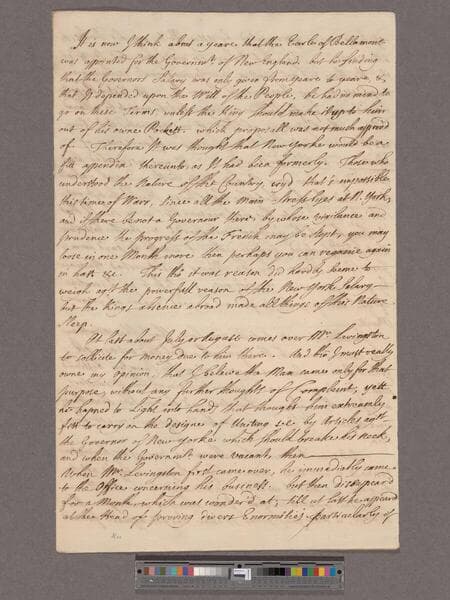 It is now I think about a yeare that the Earle of Bellamont
was appointed for the Governmt. of New England, but he finding
that the Governors Salary was only given from yeare to yeare, &
that It depended upon the Will of the People, he had no mind to
go on these Terms, unless the King should make it up to him
out of his owne Pockett. which proposall was not much approvd
of. Therefore It was thought that New Yorke would be a
fitt appendix thereunto, as It had been formerly. Those who
understood the Nature of the Country, cryd that's impossible
this time of Warr, since all the main stress lyes at N. York,
and if there be not a Governour there, by whose vigilance and
prudence the progress of the French may be stopt, you may
loose in one Month more then perhaps you can regaine again
in half &c. This tho it was reason did hardly seeme to
weigh agst the powerfull reason of the New York Salary
but the Kings absence abroad made all things of this Nature
sleep.
At last about July or August comes over Mr Levingston
to sollicite for money due to him there. And tho I must really
owne my Opinion, that I believe the Man came only for that
purpose, without any further thoughts of Complaint, yett
he hapned to Light into hands that thought him extreamly
fitt to carry on the designe of Uniting &c by Articles agst
the Governor of New-Yorke which should breake his Neck,
and when the Governmt were vacant, then
When Mr Levingston first came over, he immediatly came
to the Office concerning his business. but then disapeard
for a Month, which was wonder'd at, till at last he appeard
at the Head of proving divers Enormities, particularly of